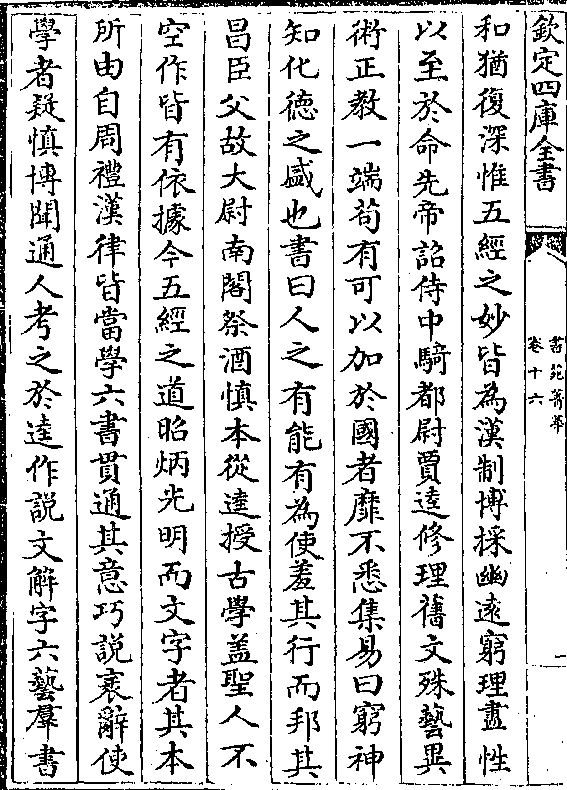 欽定四庫全書
書苑菁華
卷十六
和猶復深惟五經之妙皆為漢制博採幽遠窮理盡性
以至於命先帝詔侍中騎都尉賈逵修理舊文殊藝異
術正教一端苟有可以加於國者靡不悉集易曰窮神
知化德之盛也書曰人之有能有為使羞其行而邦其
昌臣父故大尉南閣祭酒慎本從逵授古學盖聖人不
空作皆有依據今五經之道昭炳光明而文字者其本
所由自周禮漢律皆當學六書貫通其意巧說衺辭使
學者疑慎博聞通人考之於逵作說文解字六藝羣書